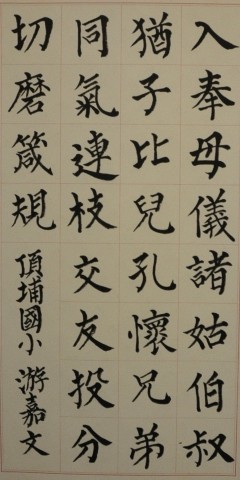 入奉母儀諸姑伯叔
猶子比兒孔懷兄弟
同氣連枝交友投分
切磨箴規
頂埔國小 游嘉文